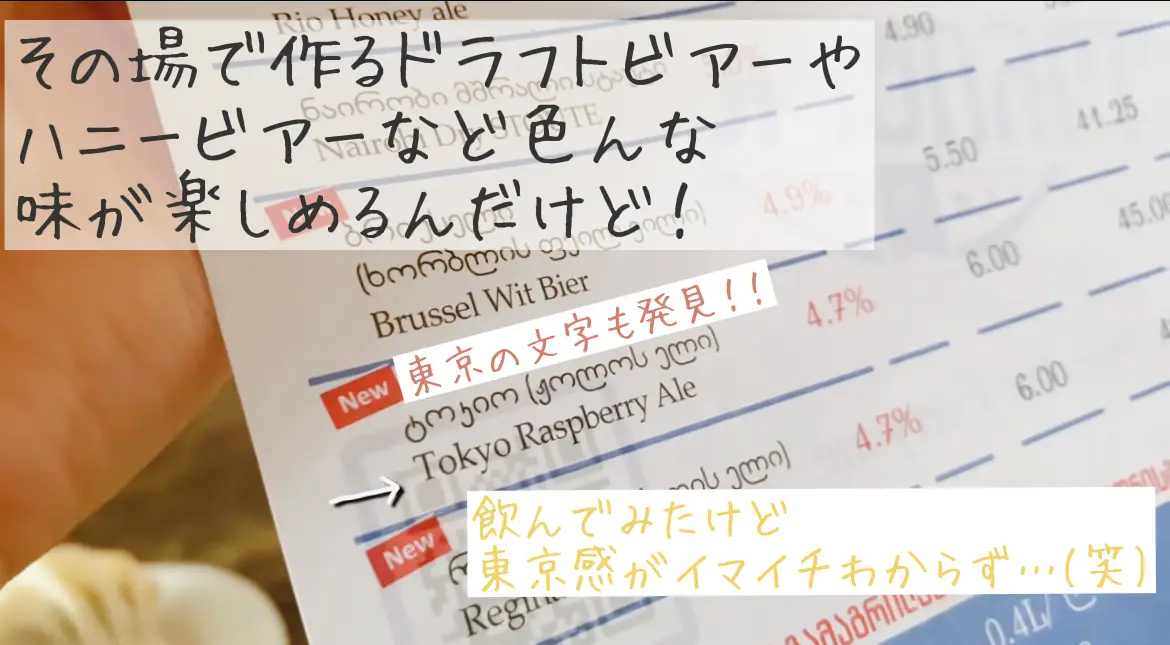 Rio Honey ale
4.90
その場で作るドラフトビアーや
ハニービアーなど色んな
味が楽しめるんだけど!
Nairobi Dry STOUTE
5.50
41.25
New
4.9%
(ხორბლის
Brussel Wit Bier
6.00
45.00
東京の文字も発見!!
4.7%
New
ტოკიო (ჟოლოს ელი)
Tokyo Raspberry Ale
6.00
4.7%
New
飲んでみたけど
東京感がイマイチわからず…(笑)
0.4L/